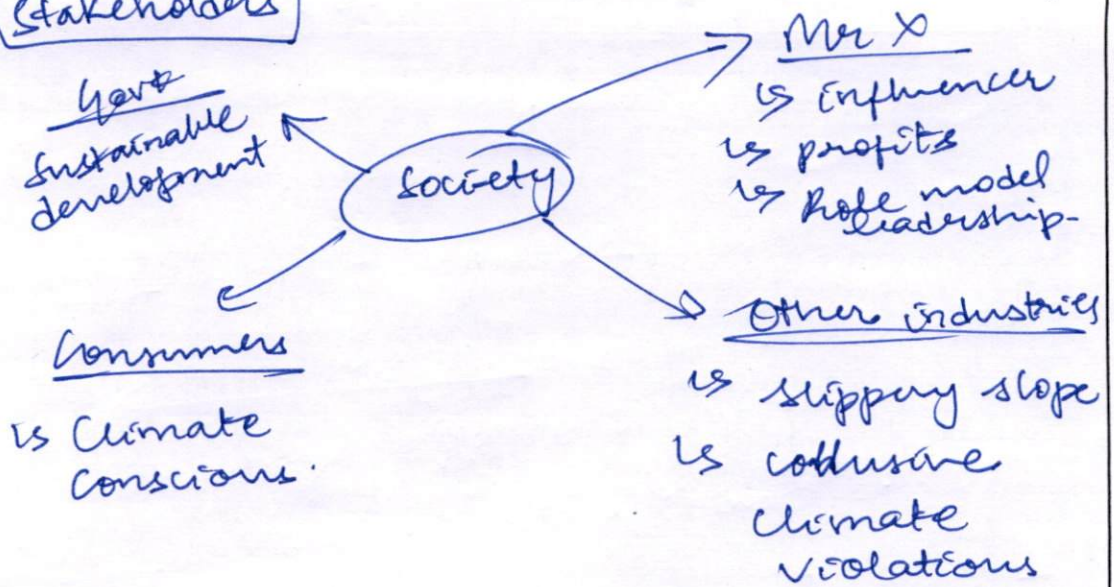 Stakeholders
Govt
Sustainable
development
Society
Mr X
↳ influencer
↳ profits
↳ Role model
leadership
Consumers
↳ Climate
conscious.
Other industries
↳ slippery slope
↳ collusive
climate
violations